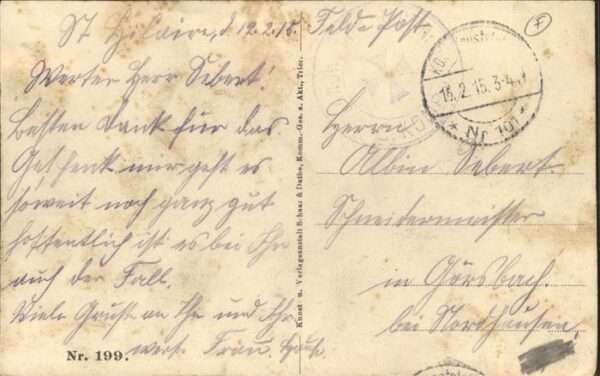 St Hilaire, d 12.2.15.
Werter Herr Sebert!
Besten Dank für das
Geschenk mir geht es
soweit noch ganz gut
hoffentlich ist es bei Ihn
auch der Fall.
Viele Grüße an Ihn und Ihr
wert. Frau.
Nr. 199.
Kunst u. Verlagsanstalt Schaar & Dathe, Komm.-Ges. a. Akt., Trier.
Feld-Post
13.2.15.3-4
* Nr. 101 *
Herrn
Albin Sebert
Schneidermeister
in Görsbach.
bei Nordhausen.